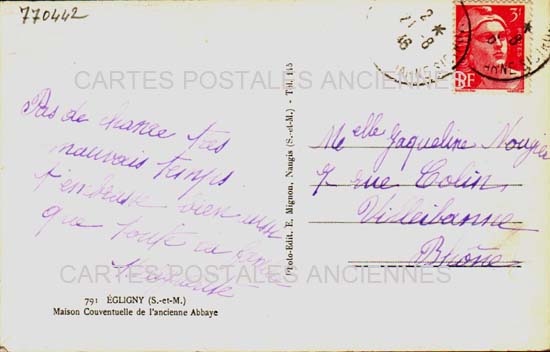 770442
3F
RF
21-8
46
CARTES POSTALES ANCIENNES
Pas de chance très
mauvais temps
t'embrasse bien
que toute la
Melle Jaqueline
7 rue Colin
Villeibanne
Rhône
Photo-Edit. E. Mignon, Nangis (S.-et-M.) - Tél. 115
CARTES POSTALES ANCIENNES
791 ÉGLIGNY (S.-et-M.)
Maison Couventuelle de l'ancienne Abbaye